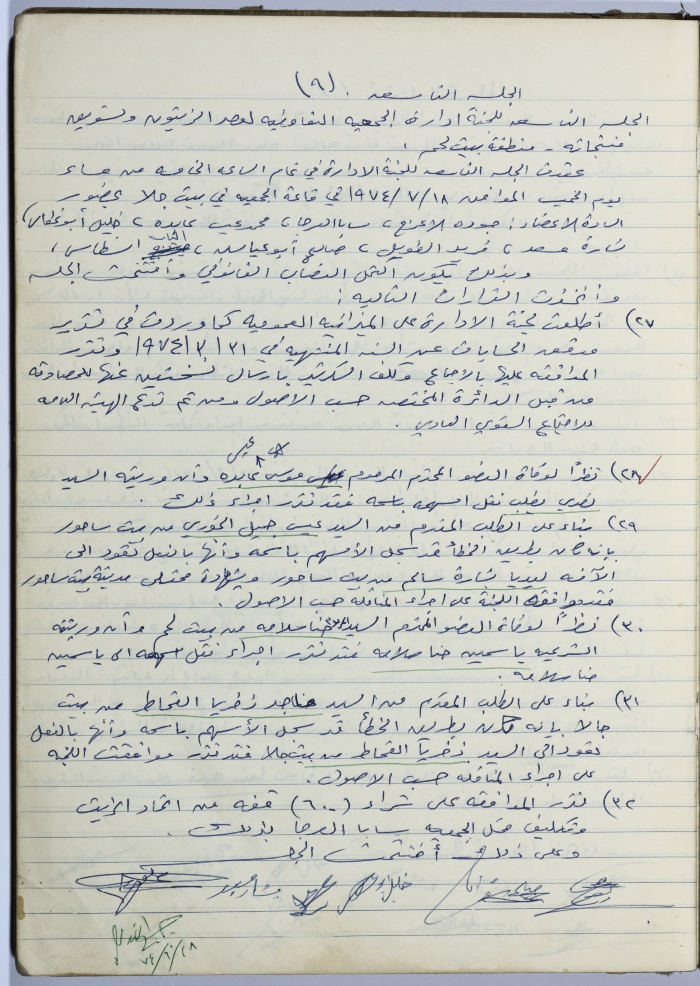 الجلسه التاسعه . (٩)
الجلسه التاسعه للجنة ادارة الجمعيه التعاونيه لعصر الزيتون وتسويق
منتجاته - منطقة بيت لحم .
عقدت الجلسه التاسعه للجنة الادارة في تمام الساعه الخامسه من مساء
يوم الخميس الموافق ١٨/٧/١٩٧٤ في قاعة الجمعيه في بيت جالا بحضور
السادة الاعضاء : جوده الاعرج ، سابا العرجا ، محمد عيسى عابده ، خليل أبو غطاس ،
بشارة مسعد ، فريد الطويل ، صالح أبو عياش ، السطاس ،
وبذلك يكون اكتمل النصاب القانوني وأفتتحت الجلسه
وأتخذت القرارات التاليه :
٢٧) أطلعت لجنة الادارة على الميزانيه العموميه كما وردت في تقرير
مدقق الحسابات عن السنه المنتهيه في ٣١/٣/١٩٧٤ وتقرر
الموافقه عليها بالاجماع وكلف السكرتير بارسال نسختين عنها للمصادقة
من قبل الدائرة المختصه حسب الاصول ومن ثم تدعى الهيئة العامه
للاجتماع السنوي العادي .
٢٨) نظرًا لوفاة العضو المحترم المرحوم موسى عابده وأن وريثه السيد
يطلب نقل اسهمه باسمه فقد تقرر اجراء ذلك .
٢٩) بناء على الطلب المقدم من السيد عيسى جميل الخوري من بيت ساحور
بانه كان بطريق الخطأ قد سجل الأسهم باسمه وأنها بالفعل تعود الى
الآنسه ليديا بشارة سالم من بيت ساحور وبشهادة ممثلي مدينة بيت ساحور
فقد وافقت اللجنة على اجراء المناقله حسب الاصول .
٣٠) نظرًا لوفاة العضو المحترم السيد حنا سلامه من بيت لحم وأن وريثته
الشرعيه ياسمين حنا سلامه فقد تقرر اجراء نقل اسهمه الى ياسمين
حنا سلامة .
٣١) بناء على الطلب المقدم من السيد ماجد زخريا القحاط من بيت
جالا بانه كان بطريق الخطأ قد سجل الأسهم باسمه وأنها بالفعل
تعود الى السيد زخريا القحاط من بيت جالا فقد تقرر موافقت اللجنه
على اجراء المناقله حسب الاصول .
٣٢) تقرر الموافقه على شراء (٦٠٠) قفه من اتحاد الزيت
وتكليف ممثل الجمعيه سابا العرجا بذلك .
وعلى ذلك أختتمت الجلسه